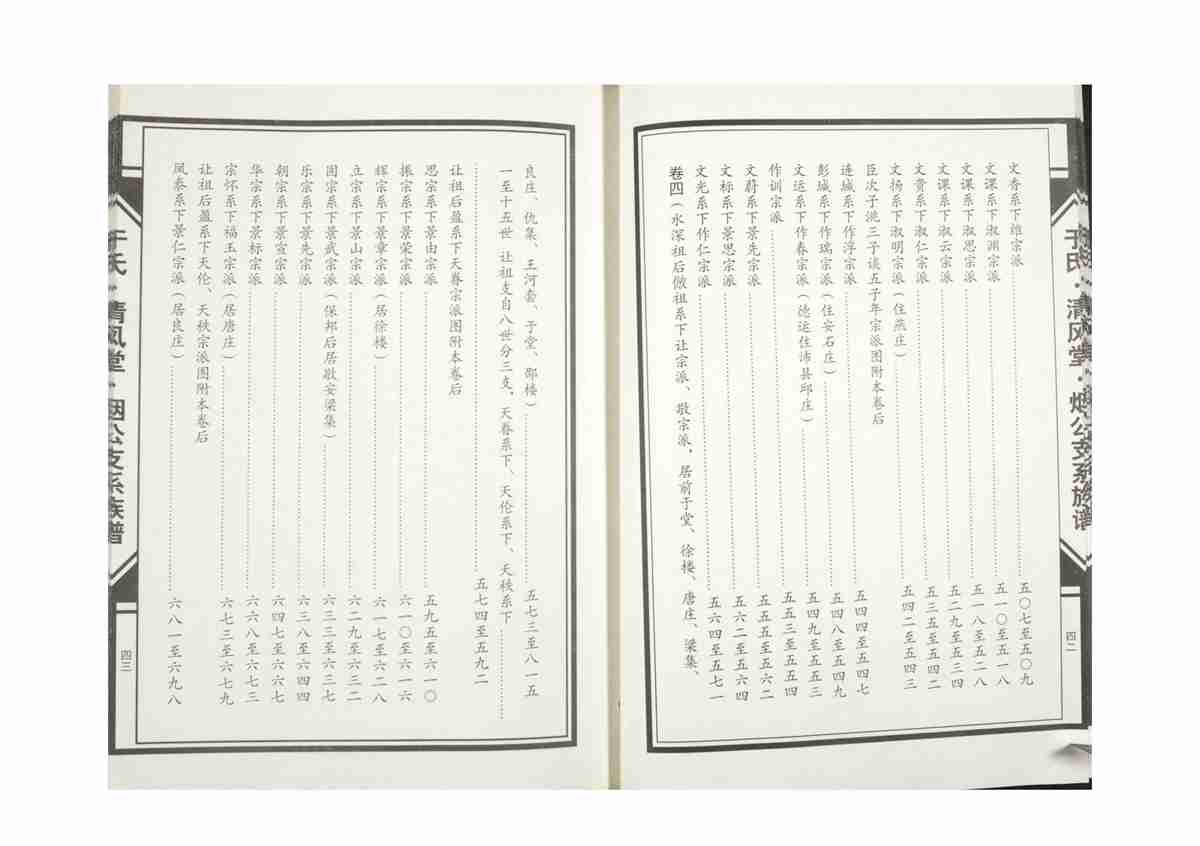 于氏·清风堂·烟公支系族谱
四二
文香系下雒宗派……五〇七至五〇九
文课系下淑渊宗派……五一〇至五一八
文课系下淑思宗派……五一八至五二八
文课系下淑云宗派……五二九至五三四
文贵系下淑仁宗派……五三五至五四二
文扬系下淑明宗派(住燕庄)……五四二至五四三
臣次子洮三子谈五子年宗派图附本卷后
连城系下作浮宗派……五四四至五四七
彭城系下作瑞宗派(住安石庄)……五四八至五四九
文运系下作春宗派(德运住沛县邱庄)……五四九至五五三
作训宗派……五五三至五五四
文蔚系下景先宗派……五五五至五六二
文标系下景思宗派……五六二至五六四
文光系下作仁宗派……五六四至五七一
卷四(永深祖后傲祖系下让宗派、敢宗派,居前于堂、徐楼、唐庄、梁集、
良庄、仇集、王河套、于堂、邵楼)……五七三至八一五
一至十五世 让祖支自八世分三支,天眷系下、天伦系下、天秩系下……
……五七四至五九二
让祖后盈系下天眷宗派图附本卷后
思宗系下景由宗派……五九五至六一〇
振宗系下景荣宗派……六一〇至六一六
辉宗系下景章宗派(居徐楼)……六一七至六二八
立宗系下景山宗派……六二九至六三二
固宗系下景武宗派(保邦后居敬安梁集)……六三三至六三七
乐宗系下景先宗派……六三八至六四四
朝宗系下景宣宗派……六四七至六六七
华宗系下景标宗派……六六八至六七三
宗怀系下福玉宗派(居唐庄)……六七三至六七九
让祖后盈系下天伦、天秩宗派图附本卷后
凤泰系下景仁宗派(居良庄)……六八一至六九八
于氏·清风堂·烟公支系族谱
四三